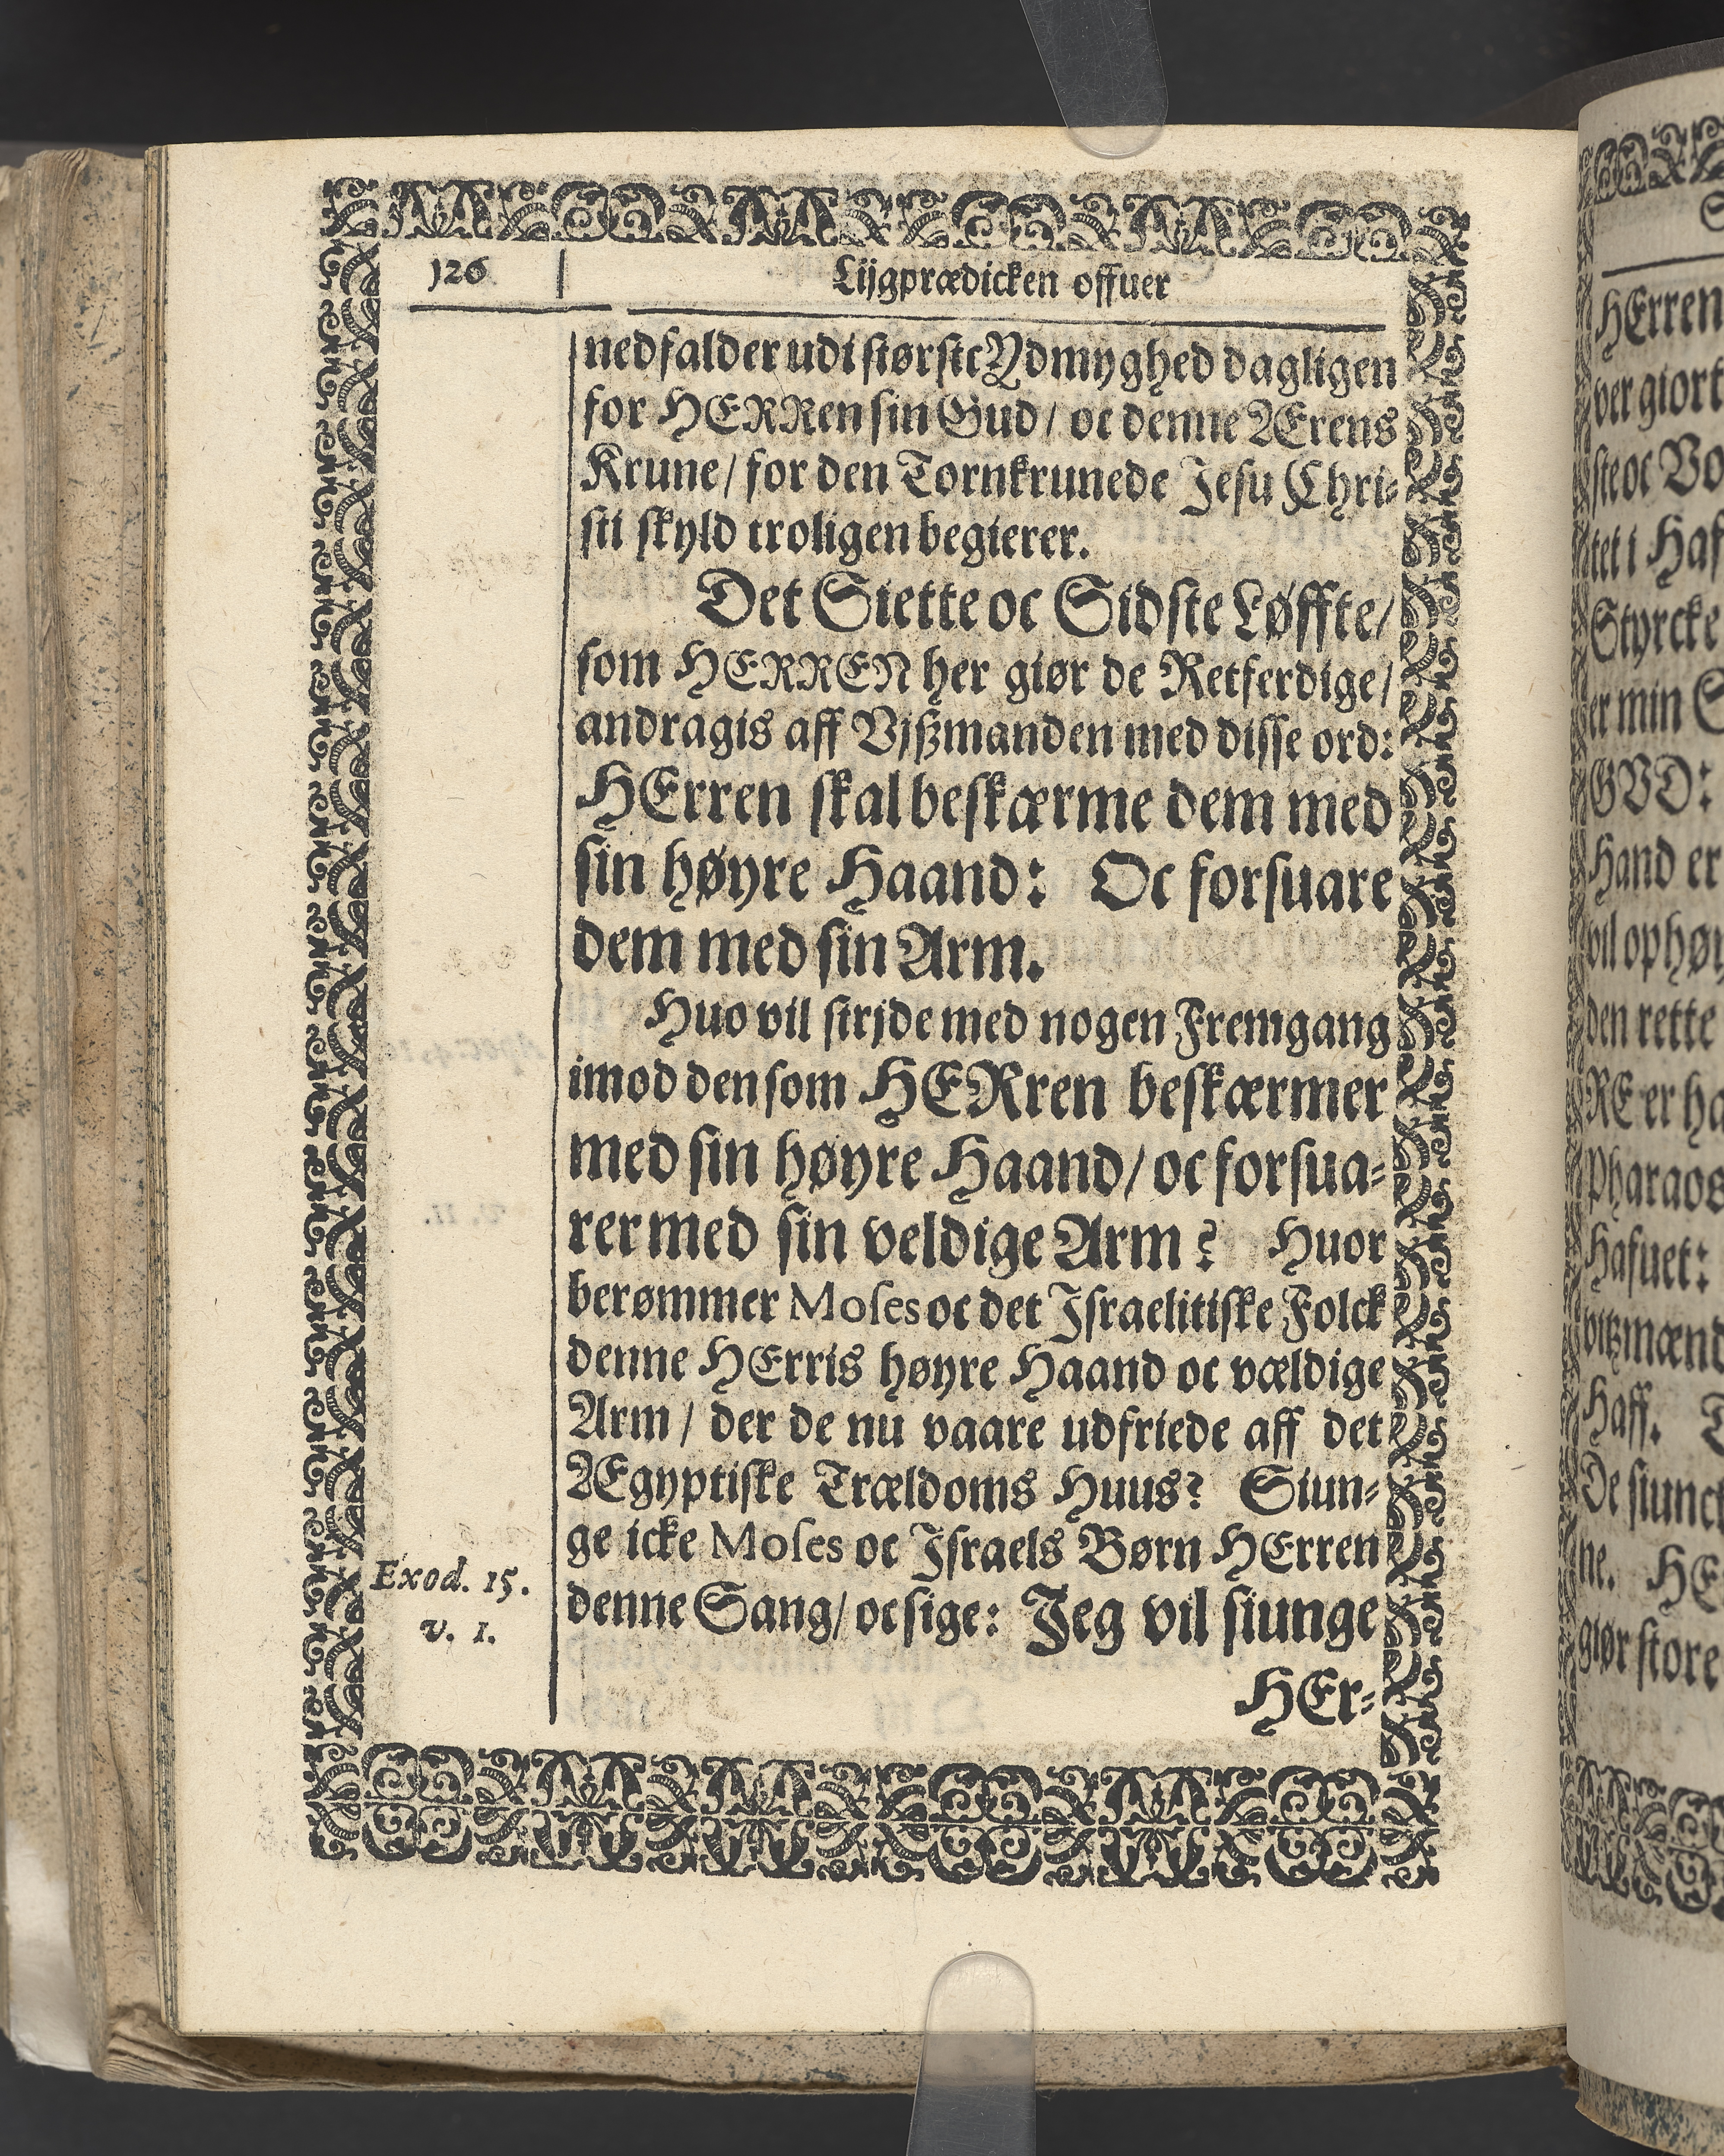 126
Lijgprædicken offuer
nedfalder udi største Ydmyghed dagligen
for HERRen sin Gud / oc denne Ærens
Krune / for den Tornkrunede Jesu Chri-
sti skyld troligen begierer.
Det Siette oc Sidste Løffte /
som HERREN her giør de Retferdige /
andragis aff Vjßmanden med disse ord:
HErren skal beskærme dem med
sin høyre Haand: Oc forsuare
dem med sin Arm.
Huo vil strjde med nogen Fremgang
imod den som HERren beskærmer
med sin høyre Haand / oc forsua-
rer med sin veldige Arm? Huor
berømmer Moses oc det Israelitiske Folck
denne HErris høyre Haand oc vældige
Arm / der de nu vaare udfriede aff det
Ægyptiske Trældoms Huus? Siun-
ge icke Moses oc Israels Børn HErren
denne Sang / oc sige: Jeg vil siunge
Exod. 15.
v. 1.
HEr-
HErren
ver giort
ste oc
tet i Haf
Styrcke
er min
GVD:
Hand er
vil ophøy
den rette
RE er
Pharaos
Hafuet:
vitzmænd
Haff.
De siunc
ne. HE
giør store